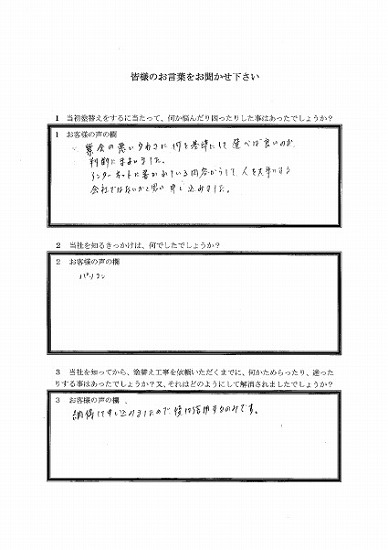 皆様のお言葉をお聞かせ下さい
1 当初塗替えをするに当たって、何か悩んだり困ったりした事はあったでしょうか？
1 お客様の声の欄
業会の悪いうわさに何を基準にして選べば良いのか
判断に迷いました。
インターネットに書かれている内容からして、人を大事にする
会社ではないかと思い申し込みました。
2 当社を知るきっかけは、何でしたでしょうか？
2 お客様の声の欄
パソコン
3 当社を知ってから、塗替え工事を依頼いただくまでに、何かためらったり、迷った
りする事はあったでしょうか？又、それはどのようにして解消されましたでしょうか？
3 お客様の声の欄
納得して申し込みましたので後は信用するのみです。